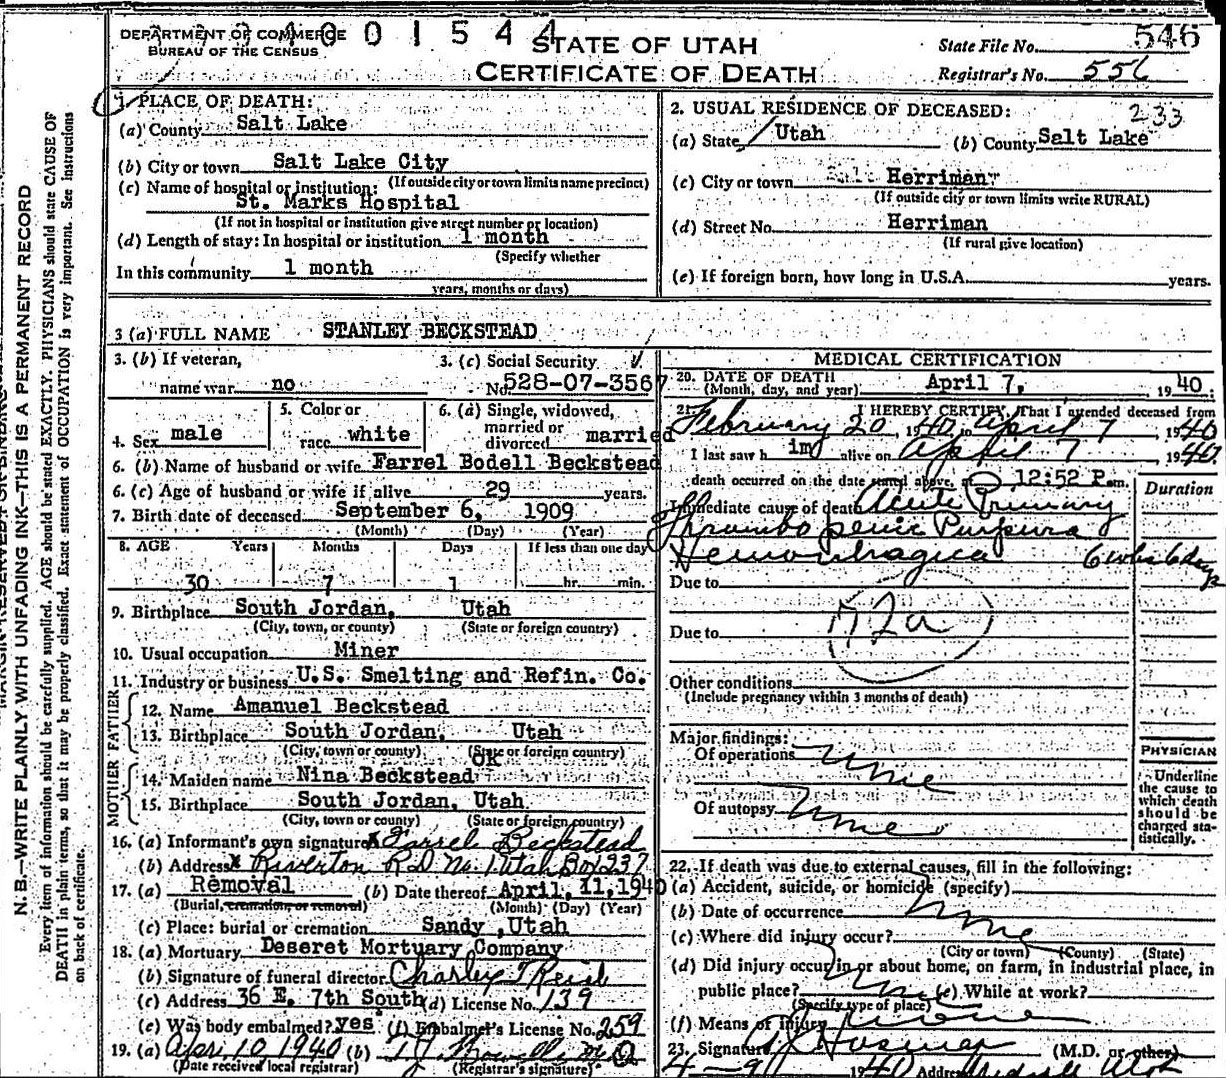 DEPARTMENT OF COMMERCE
BUREAU OF THE CENSUS
4 0 0 1 5 4 4
STATE OF UTAH
CERTIFICATE OF DEATH
State File No. 546
Registrar's No. 556
N. B.—WRITE PLAINLY WITH UNFADING INK—THIS IS A PERMANENT RECORD
Every item of information should be carefully supplied. AGE should be stated EXACTLY. PHYSICIANS should state CAUSE OF
DEATH in plain terms, so that it may be properly classified. Exact statement of OCCUPATION is very important. See instructions
on back of certificate.
1. PLACE OF DEATH:
(a) County Salt Lake
(b) City or town Salt Lake City
(If outside city or town limits name precinct)
(c) Name of hospital or institution:
St. Marks Hospital
(If not in hospital or institution give street number or location)
(d) Length of stay: In hospital or institution 1 month
(Specify whether
In this community 1 month
years, months or days)
2. USUAL RESIDENCE OF DECEASED:
233
(a) State Utah (b) County Salt Lake
(c) City or town Herriman
(If outside city or town limits write RURAL)
(d) Street No. Herriman
(If rural give location)
(e) If foreign born, how long in U.S.A. years.
3 (a) FULL NAME STANLEY BECKSTEAD
3. (b) If veteran,
name war no
3. (c) Social Security
No. 528-07-3567
4. Sex male
5. Color or
race white
6. (a) Single, widowed,
married or
divorced married
6. (b) Name of husband or wife Farrel Bodell Beckstead
6. (c) Age of husband or wife if alive 29 years.
7. Birth date of deceased September 6, 1909
(Month) (Day) (Year)
8. AGE Years Months Days If less than one day
30 7 1 hr. min.
9. Birthplace South Jordan, Utah
(City, town, or county) (State or foreign country)
10. Usual occupation Miner
11. Industry or business U.S. Smelting and Refin. Co.
FATHER
12. Name Amanuel Beckstead
13. Birthplace South Jordan, Utah
(City, town or county) (State or foreign country)
OK
MOTHER
14. Maiden name Nina Beckstead
15. Birthplace South Jordan, Utah
(City, town or county) (State or foreign country)
16. (a) Informant's own signature X Farrel Beckstead
(b) Address X Riverton R.D. No. 1 Utah Box 237
17. (a) Removal (b) Date thereof April, 11, 1940
(Burial, cremation, or removal) (Month) (Day) (Year)
(c) Place: burial or cremation Sandy, Utah
18. (a) Mortuary Deseret Mortuary Company
(b) Signature of funeral director Charley T Reid
(c) Address 36 E. 7th South (d) License No. 139
(e) Was body embalmed? yes (f) Embalmer's License No. 259
19. (a) Apr. 10 1940 (b)
(Date received local registrar) (Registrar's signature)
MEDICAL CERTIFICATION
20. DATE OF DEATH
(Month, day, and year) April 7, 1940.
21. I HEREBY CERTIFY, That I attended deceased from
February 20, 1940, to April 7, 1940
I last saw him alive on April 7, 1940
death occurred on the date stated above, at 12:52 P.m.
Duration
Immediate cause of death Acute Primary
Thrombopenic Purpura
Hemorrhagica 6 wks 6 days
Due to
72a
Due to
Other conditions
(Include pregnancy within 3 months of death)
Major findings:
Of operations none
Of autopsy none
PHYSICIAN
Underline
the cause to
which death
should be
charged sta-
tistically.
22. If death was due to external causes, fill in the following:
(a) Accident, suicide, or homicide (specify)
(b) Date of occurrence none
(c) Where did injury occur?
(City or town) (County) (State)
(d) Did injury occur in or about home, on farm, in industrial place, in
public place? none (e) While at work?
(Specify type of place)
(f) Means of injury none
23. Signature (M.D. or other)
4-9 1940 Address